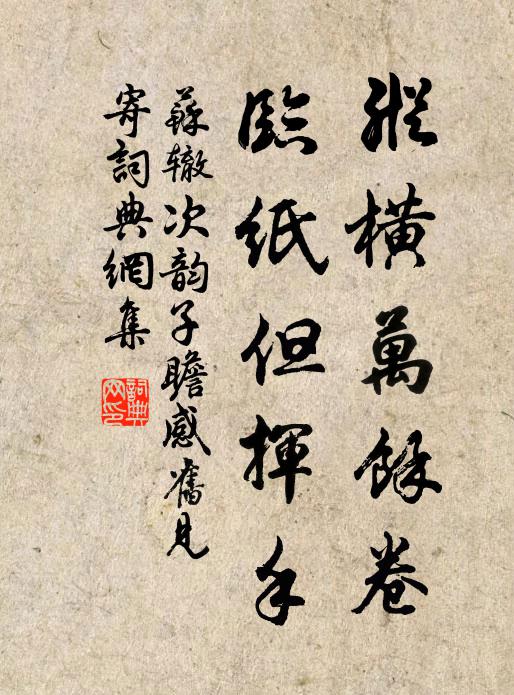 縱橫萬餘卷
臨紙但揮手
蘇轍次韵子瞻感舊見
寄詞典網集
詞典
网印